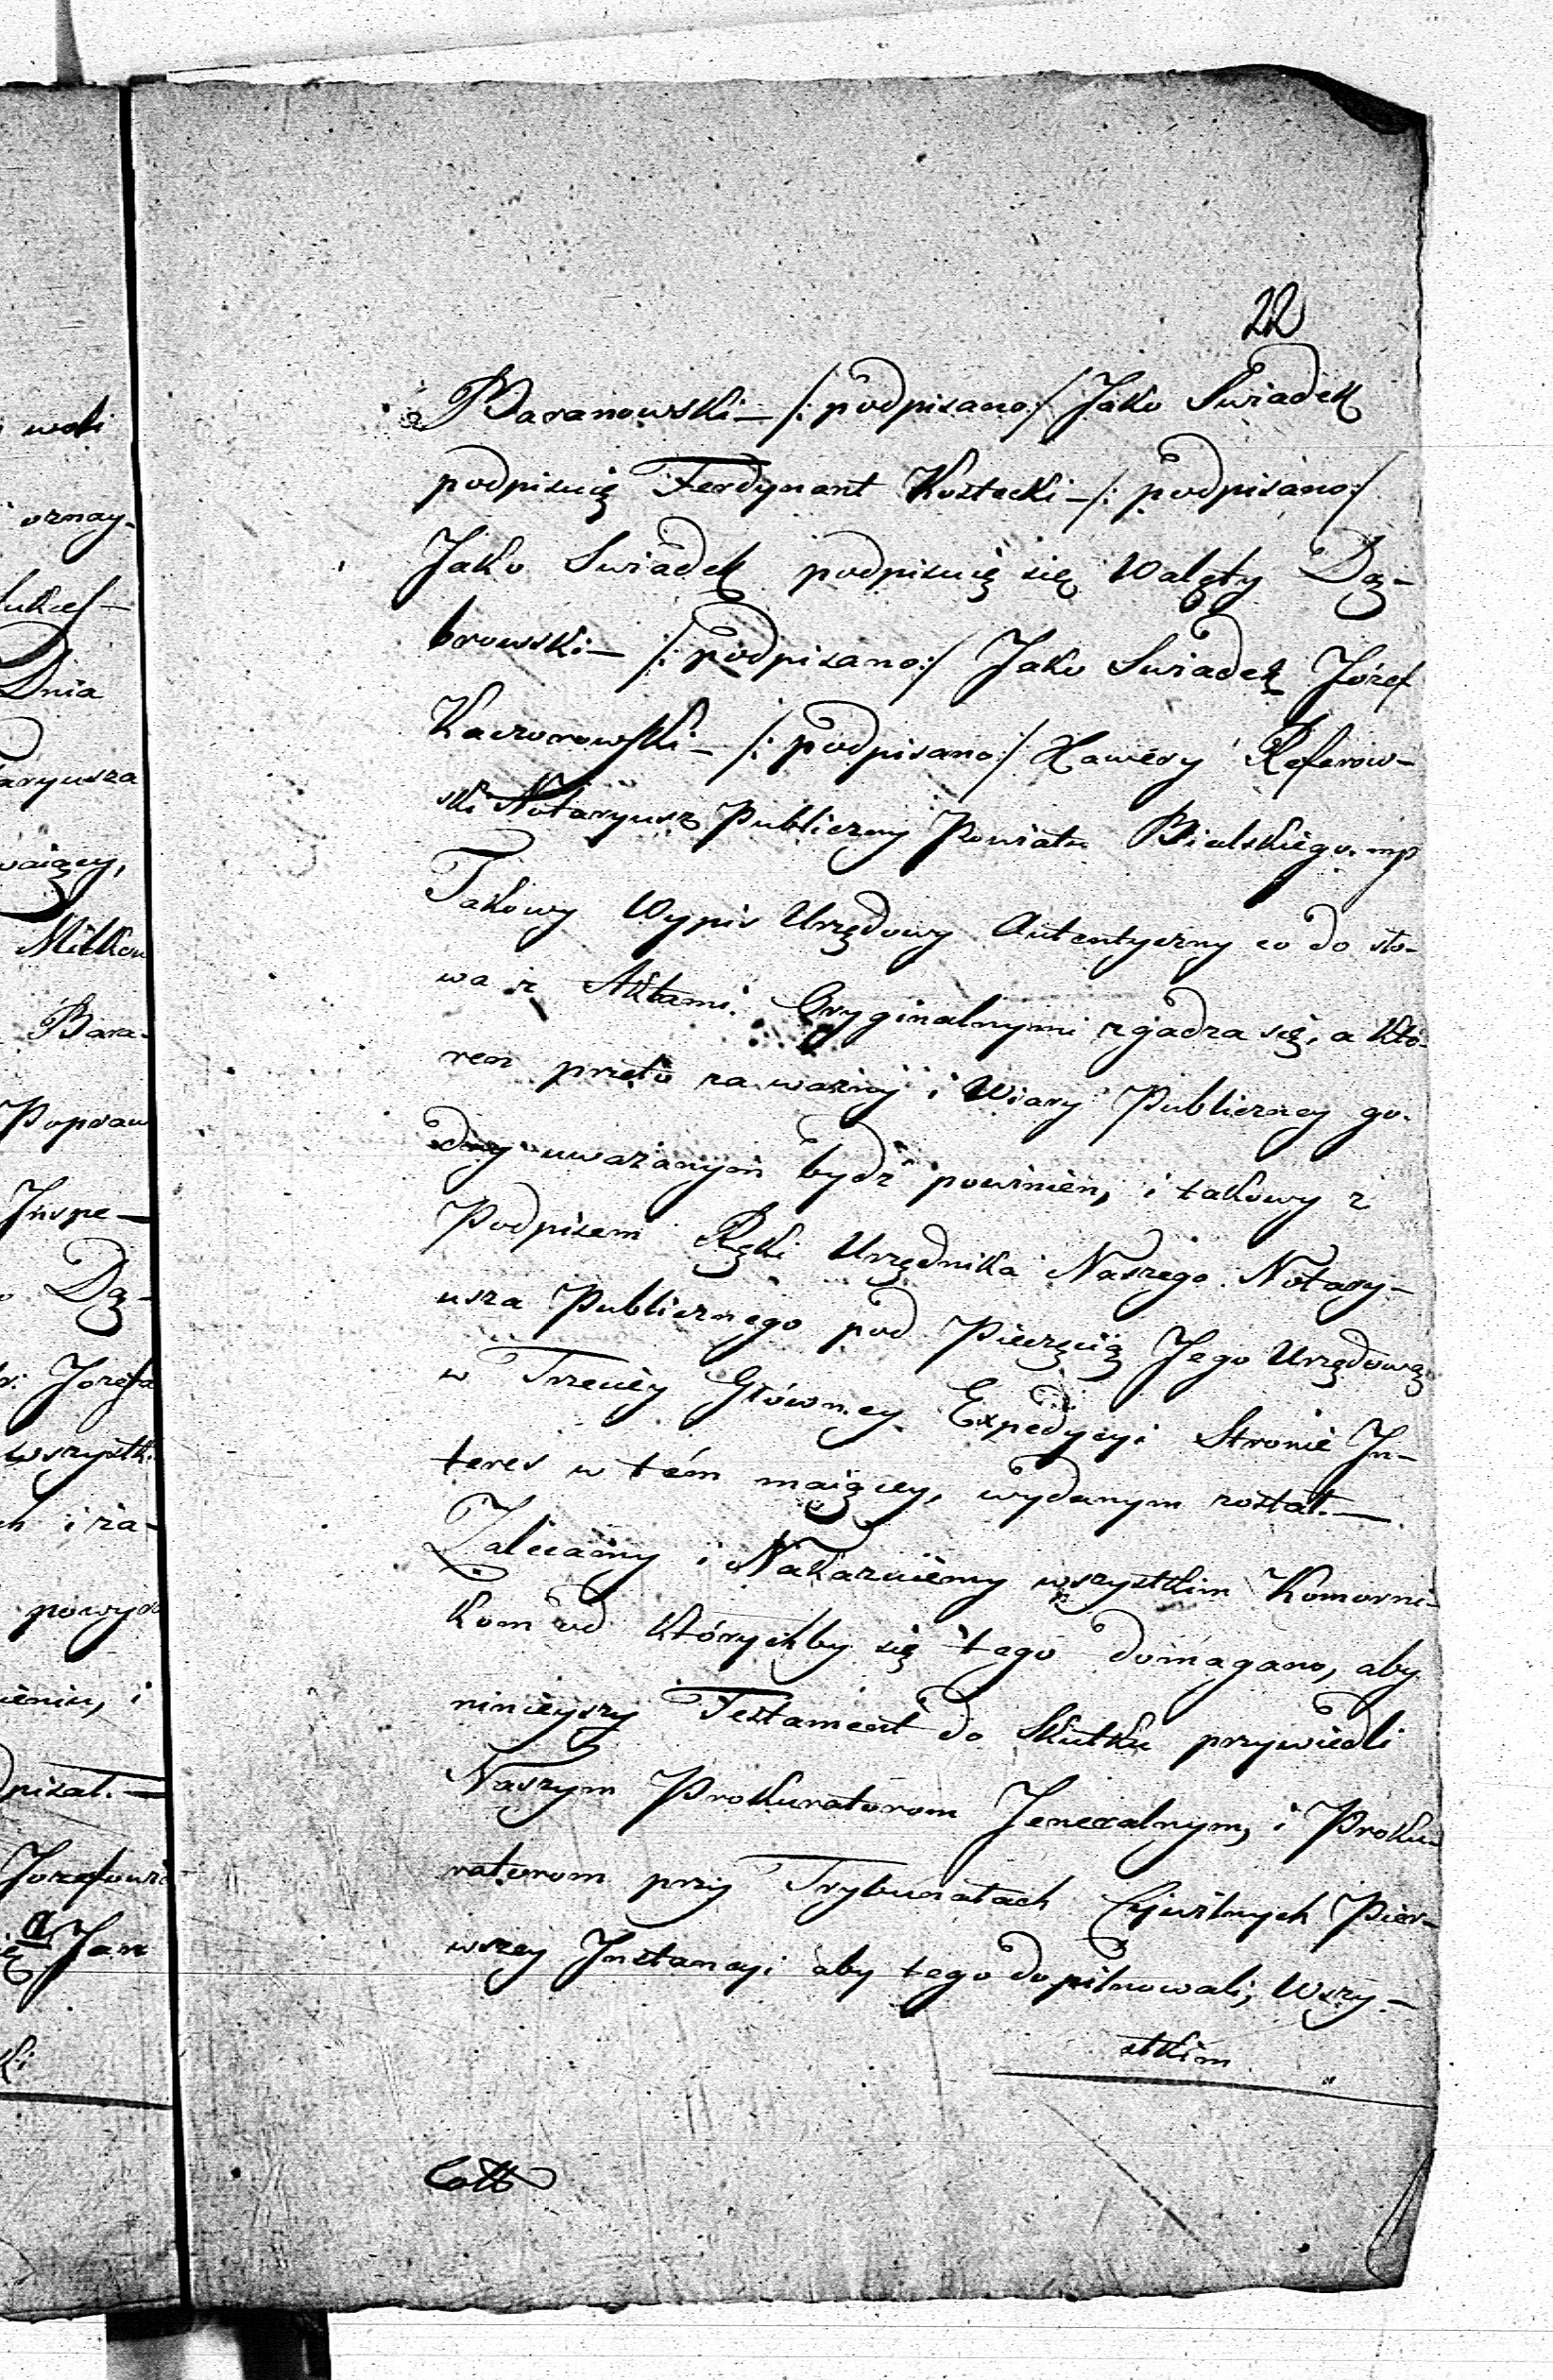 22
Baranowski — /: podpisano :/ Jako Swiadek
podpisuię Ferdynant Kostecki — /: podpisano :/
Jako Swiadek podpisuię się Walęty Dą-
browski — /: podpisano :/ Jako Swiadek Józef
Kaczorowski — /: podpisano :/ Xawery Referow-
ski Notaryusz Publiczny Powiatu Bialskiego. mp
Takowy Wypis Urzędowy Autentyczny co do sło-
wa z Aktami Oryginalnymi zgadza się, a któ-
ren przeto za ważny i Wiary Publiczney go-
dny uważanym bydź powinien, i takowy z
Podpisem Ręki Urzędnika Naszego Notary-
usza Publicznego pod Pieczęcią Jego Urzędową
w Trzeciey Główney Expedycyi Stronie In-
teres w tém maiącey, wydanym został. —
Zalecamy i Nakazuiemy wszystkim Komorni-
kom od którychby się tego domagano, aby
ninieyszy Testament do Skutku przywiedli
Naszym Prokuratorom Jeneralnym, i Proku
ratorom przy Trybunałach Cywilnych Pier-
wszey Instancyi aby tego dopilnowali, Wszy-
stkim
woli
oznay-
Dnia
aryusza
Bara-
Popraw
Inspe-
Dą-
Jozefa
wszystk
i za-
powyż
pisał. —
Jozefowi
Jan
ki